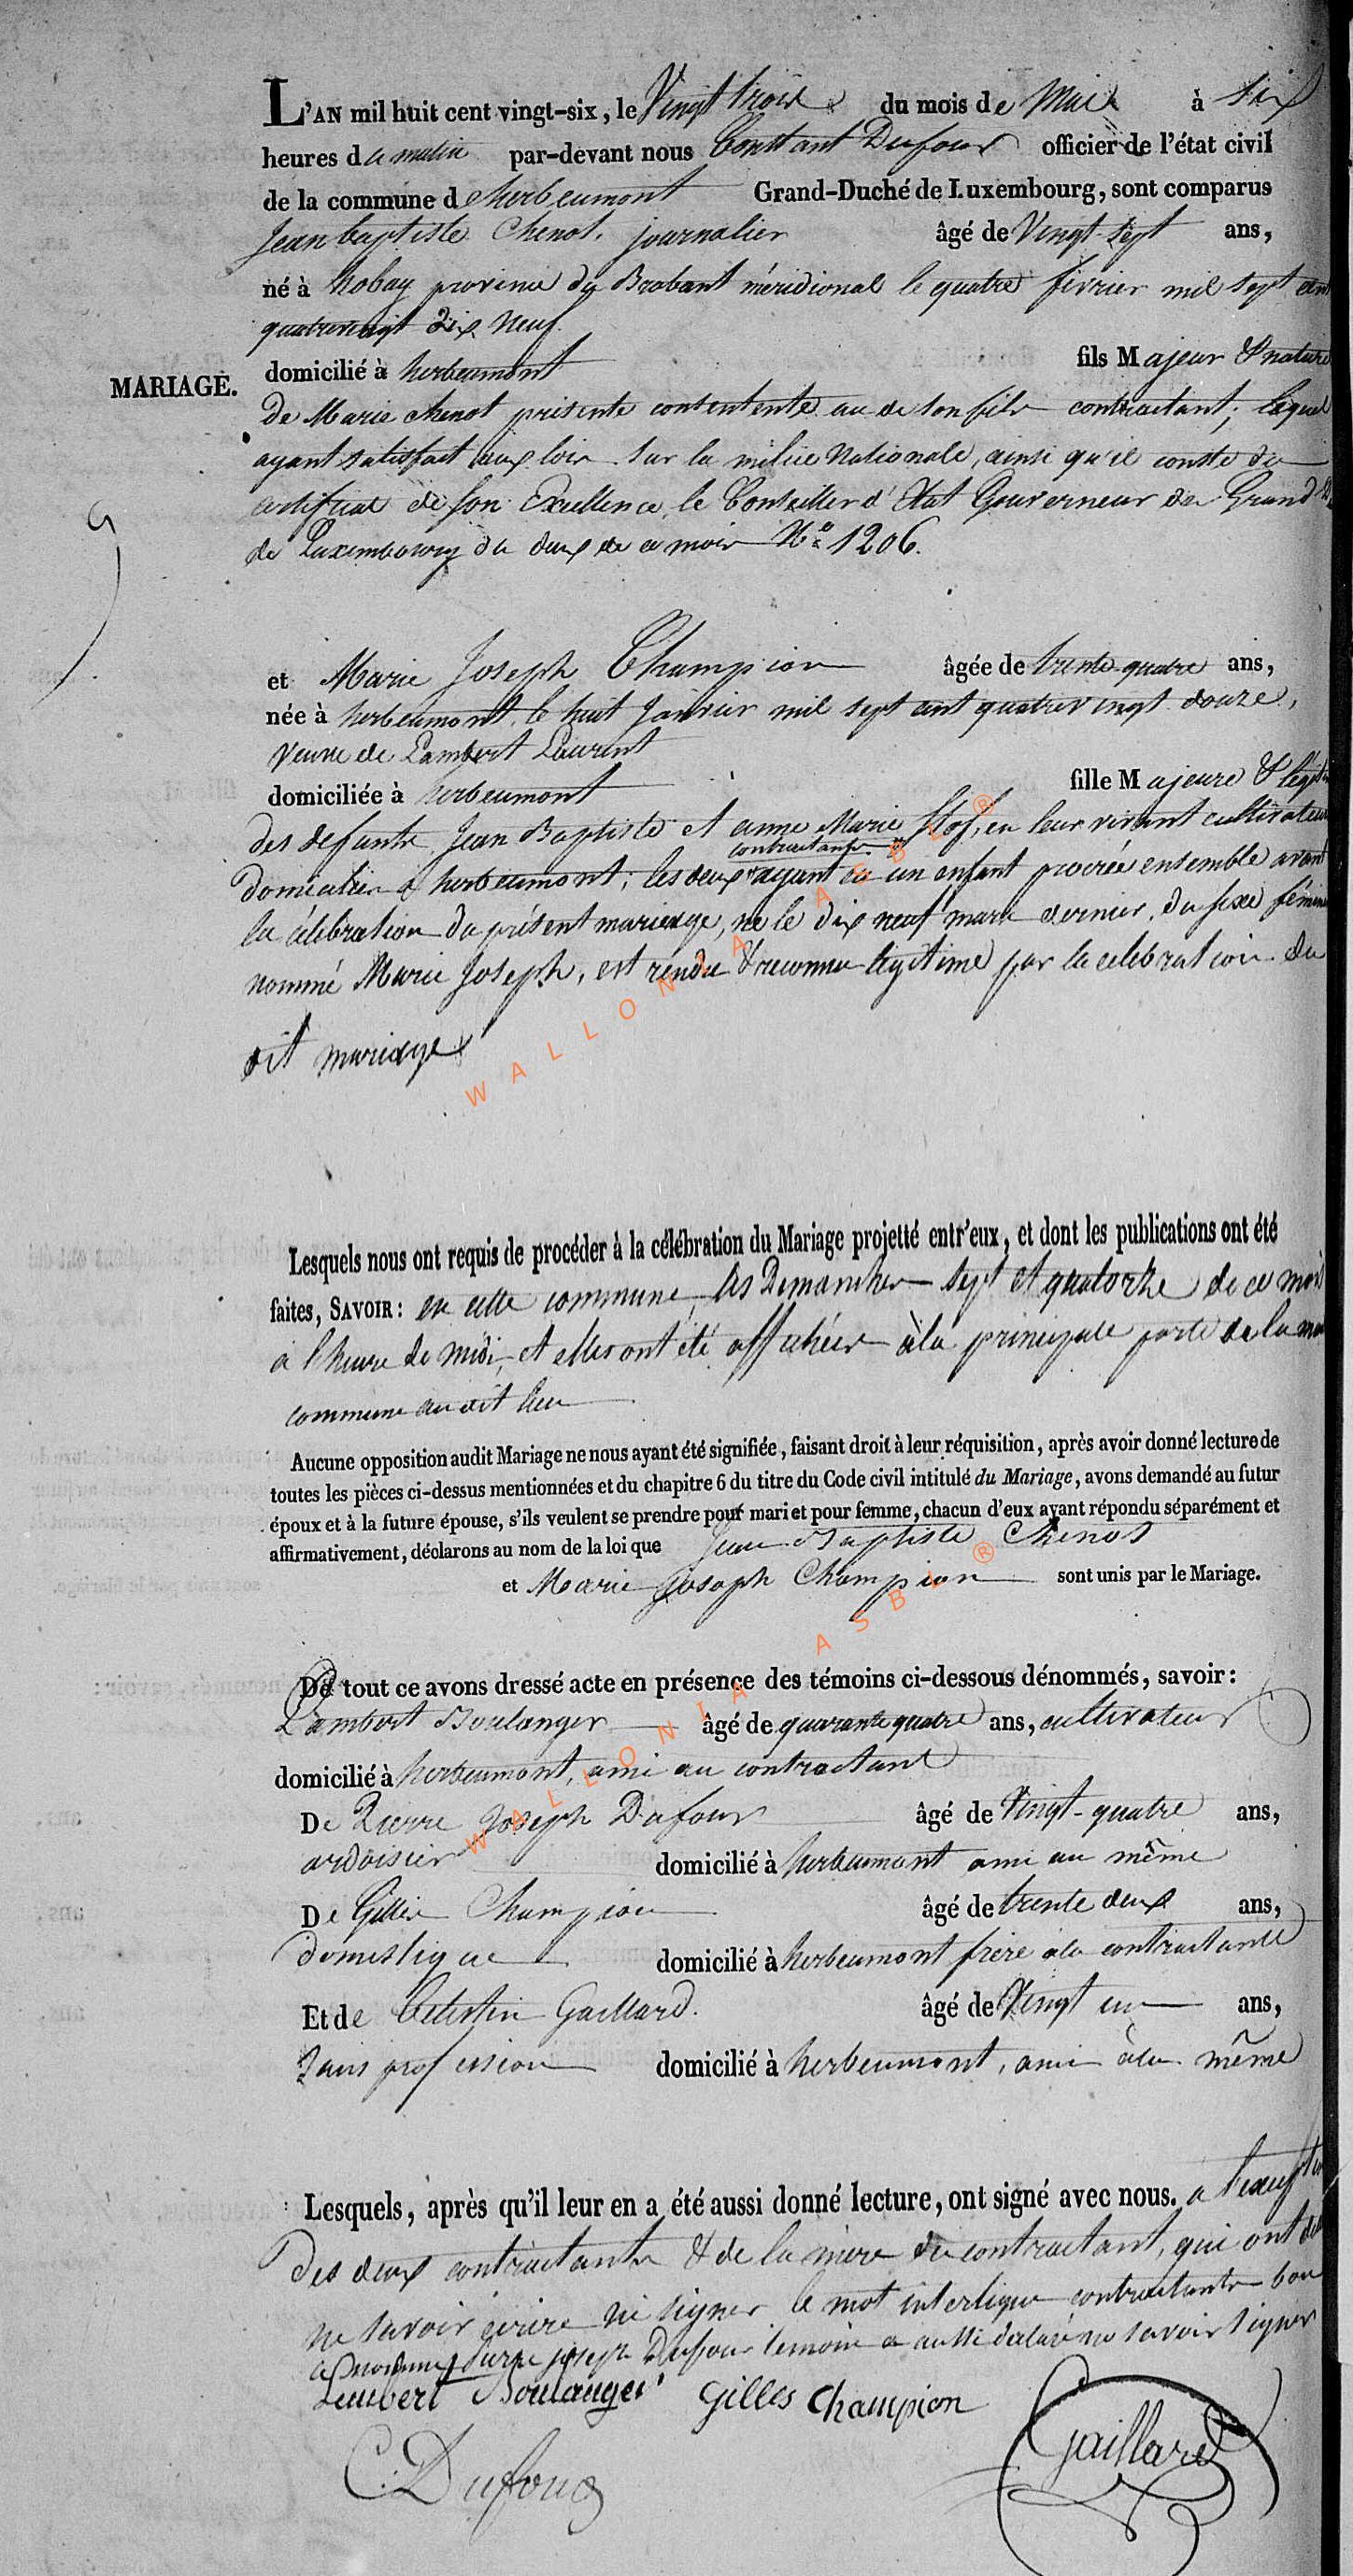 L'AN mil huit cent vingt-six, le Vingt trois du mois de Mai à six
heures du matin par-devant nous Constant Dufour officier de l'état civil
de la commune d'herbeumont Grand-Duché de Luxembourg, sont comparus
Jean baptiste Chenot, journalier âgé de Vingt-sept ans,
né à Nobay province du Brabant méridional le quatre février mil sept cent
quatrevingt dix neuf
MARIAGE.
domicilié à herbeumont fils Majeur & nature
de Marie Chenot présente consentente au de son fils contractant; lequel
ayant satisfait aux loix sur la milice Nationale, ainsi qu'il conste du
certificat de son Excellence, le Conseiller d'Etat Gouverneur du Grand D
de Luxembourg du deux de ce mois No 1206.
et Marie Joseph Champion âgée de trente-quatre ans,
née à herbeumont, le huit Janvier mil sept cent quatrevingt douze,
veuve de Lambert Laurent
domiciliée à herbeumont fille Majeure & légit
des defunts Jean Baptiste et anne Marie en leur vivant cultivateurs
contractants
domiciliés à herbeumont; les deux ayant eu un enfant procréé ensemble avant
la célébration du présent mariage, né le dix neuf mars dernier, du sexe fémin
nommé Marie Joseph, est rendu & reconnu légitime par la célébration du
dit mariage
Lesquels nous ont requis de procéder à la célébration du Mariage projetté entr'eux, et dont les publications ont été
faites, SAVOIR: en cette commune, les Dimanches sept et quatorze de ce mois
à l'heure de midi, et elles ont été affichées à la principale porte de la mai
commune au dit lieu
Aucune opposition audit Mariage ne nous ayant été signifiée, faisant droit à leur réquisition, après avoir donné lecture de
toutes les pièces ci-dessus mentionnées et du chapitre 6 du titre du Code civil intitulé du Mariage, avons demandé au futur
époux et à la future épouse, s'ils veulent se prendre pour mari et pour femme, chacun d'eux ayant répondu séparément et
affirmativement, déclarons au nom de la loi que Jean Baptiste Chenot
et Marie Joseph Champion sont unis par le Mariage.
De tout ce avons dressé acte en présence des témoins ci-dessous dénommés, savoir:
Lambert Boulanger âgé de quarante quatre ans, cultivateur
domicilié à herbeumont, ami au contractant
De Pierre Joseph Dufour âgé de Vingt-quatre ans,
ardoisier domicilié à herbeumont ami au même
De Gilles Champion âgé de trente deux ans,
domestique domicilié à herbeumont frère à la contractante
Et de Célestin Gaillard. âgé de Vingt un ans,
sans profession domicilié à herbeumont, ami à la même
Lesquels, après qu'il leur en a été aussi donné lecture, ont signé avec nous. a l'exeption
des deux contractants & de la mère du contractant, qui ont dé
ne savoir écrire ni signer le mot interligne contractants bon
Pierre joseph Dufour temoin a aussi déclaré ne savoir signer
Lambert Boulanger Gilles Champion
Gaillard
C. Dufour
WALLONIA ASBL ®
WALLONIA ASBL ®